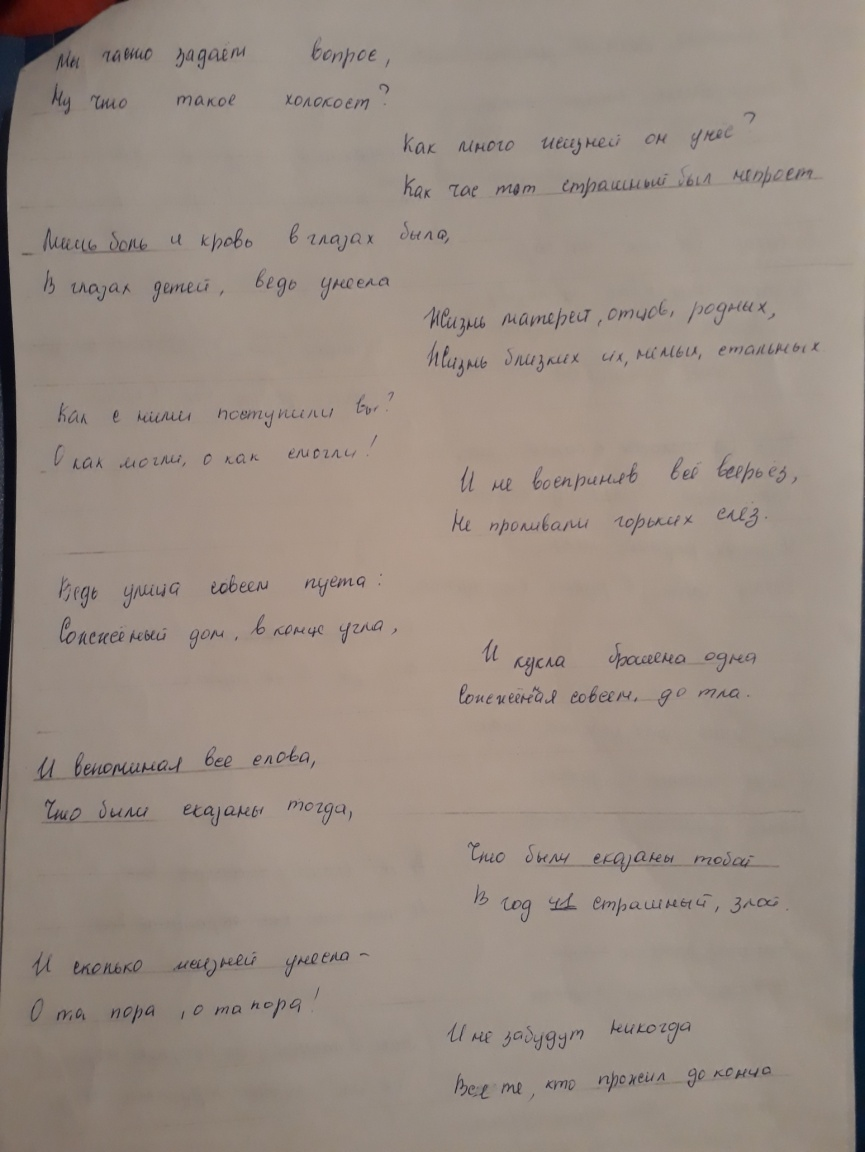 Мы часто задаём вопрос,
Ну что такое холокост?
Как много жизней он унёс?
Как час тот страшный был непрост
Лишь боль и кровь в глазах была,
В глазах детей, ведь унесла
Жизнь матерей, отцов, родных,
Жизнь близких их, немых, стальных
Как с ними поступили вы?
О как могли, о как смогли!
И не восприняв всё всерьёз,
Не проливали горьких слёз.
Ведь улица совсем пуста:
Сожжёный дом, в конце угла,
И кукла брошена одна
Сожжённая совсем, до тла.
И вспоминая все слова,
Что были сказаны тогда,
Что были сказаны тобой
В год 41 страшный, злой.
И сколько жизней унесла –
О та пора, о та пора!
И не забудут никогда
Все те, кто прожил до конца